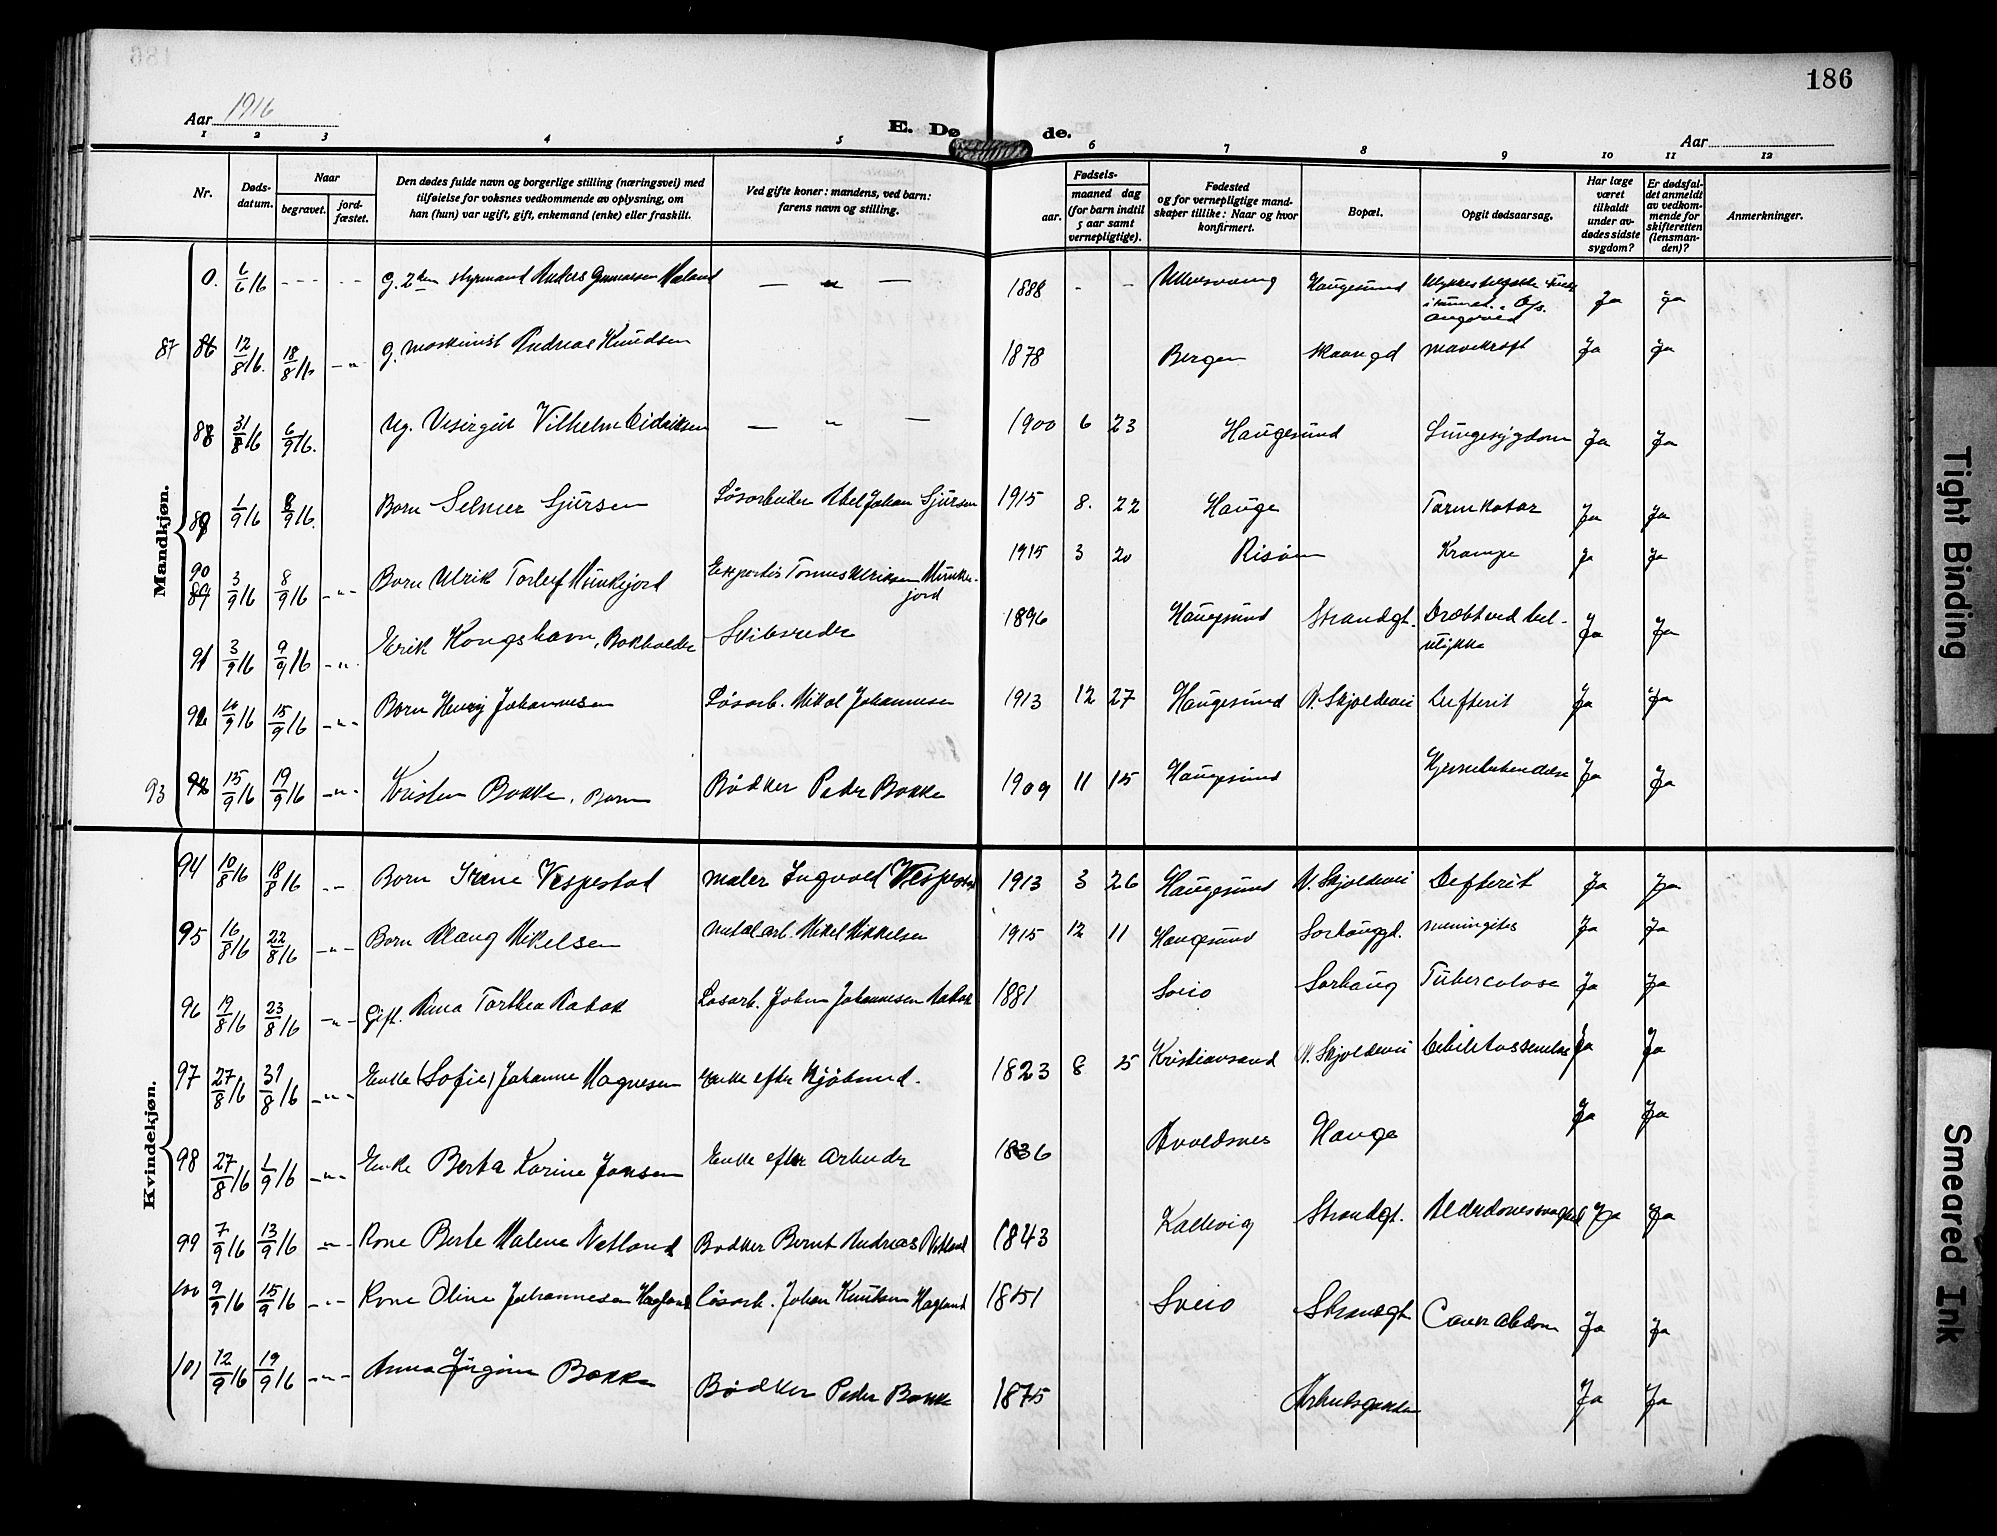 186
Aar 1916
E. Dø de.
Aar
1 2 3 4 5 6 7 8 9 10 11 12
Nr.
Døds-
datum.
Naar
begravet.
jord-
fæstet.
Den dødes fulde navn og borgerlige stilling (næringsvei) med
tilføielse for voksnes vedkommende av oplysning, om
han (hun) var ugift, gift, enkemand (enke) eller fraskilt.
Ved gifte koner: mandens, ved barn:
farens navn og stilling.
Fødsels-
aar.
maaned dag
(for barn indtil
5 aar samt
vernepligtige).
Fødested
og for vernepligtige mand-
skaper tillike: Naar og hvor
konfirmert.
Bopæl.
Opgit dødsaarsag.
Har læge
været
tilkaldt
under av-
dødes sidste
sygdom?
Er dødsfal-
det anmeldt
av vedkom-
mende for
skifteretten
(lensman-
den)?
Anmerkninger.
Mandkjøn.
0. 6/6 16 - - - - - G. 2den styrmand Anders Gunnarsen Mæland — " — 1888 - - Ullensvang Haugesund Ja Ja
87 86 12/8 16. 18/8 16 - " - G. maskinist Andreas Knudsen 1878 Bergen Skaaregd mavekræft Ja Ja
88 31/8 16 6/9 16. Ug. Visergut Vilhelm Eidriksen — " — 1900 6 23 Haugesund Lungesygdom Ja Ja
89 1/9 16 8/9 16. Barn Selmer Sjursen Løsarbeider Abel Johan Sjursen 1915 8. 22 Hauge Tarmkatar Ja Ja
90 89 3/9 16 8/9 16 - " - Barn Ulrik Torleif Munkejord Ekspeditør Tønnes Ulriksen Munke-
jord 1915 3 20 Risøen Krampe Ja Ja
91 3/9 16 9/9 16 - " - Erik Kongshavn, Bokholder Skibsreder 1896 Haugesund Strandgt. Dræbt ved bil-
ulykke Ja Ja
92 10/9 16 15/9 16 - " - Barn Henry Johannesen Løsarb. Mikal Johannesen 1913 12 27 Haugesund N. Skjoldevei Difterit Ja Ja
93 92 15/9 16 19/9 16 - " - Kristen Bakke, Barn Bødker Peder Bakke 1909 11 15 Haugesund Hjernebetændelse Ja Ja
Kvindekjøn.
94 10/8 16 18/8 16 - - Barn Irene Vespestad maler Ingvald Vespestad 1913 3 26 Haugesund N. Skjoldevei Difterit Ja Ja
95 16/8 16 22/8 16 - " - Barn Alaug Mikelsen metalarb. Mikel Mikkelsen 1915 12 11 Haugesund Sørhauggd. meningites Ja Ja
96 19/8 16 23/8 16 - " - Gift. Anna Torthea Rabak Løsarb. John Johannesen Rabak 1881 Sveio Sørhaug Tuberculose Ja Ja
97 27/8 16 31/8 16 - " - Enke (Sofie) Johanne Magnesen Enke efter Kjøbmd. 1823 8 5 Kristiansand N. Skjoldevei Debilitas senilis Ja Ja
98 27/8 16 1/9 16 - " - Enke Berta Karine Jansen Enke efter Arbeider 1836 Avaldsnes Hauge Ja Ja
99 7/9 16 13/9 16 - " - Kone Berte Malene Netland Bødker Bernt Andreas Netland 1843 Kallevig Strandgt. Alderdomssvaghed Ja Ja
100 9/9 16 15/9 16 - " - Kone Oline Johannesen Hagland Løsarb. Johan Knutsen Hagland 1851 Sveio Strandgt Cancer abdom Ja Ja
101 12/9 16 19/9 16 - " - Anna Jørgine Bakke Bødker Peder Bakke 1875 Arbeidsgaarden Ja Ja
Tight Binding
Smeared Ink